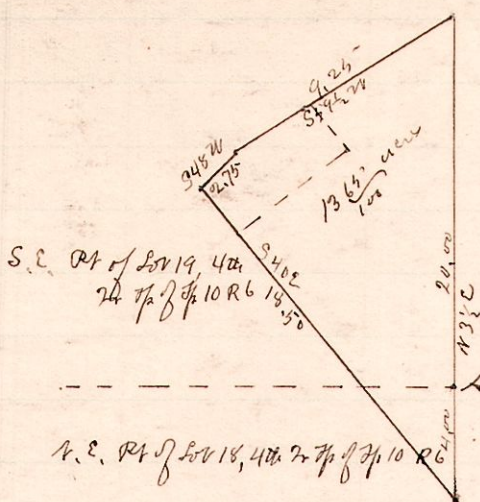 9.25
S59½W
S48W
2.75
13 65/100 acres
S.E. Pt of Lot 19, 4th
Qr Tp of Tp 10 R6
S40E
18.50
20.00
N3½E
4.00
N.E. Pt of Lot 18, 4th Qr Tp of Tp 10 R6